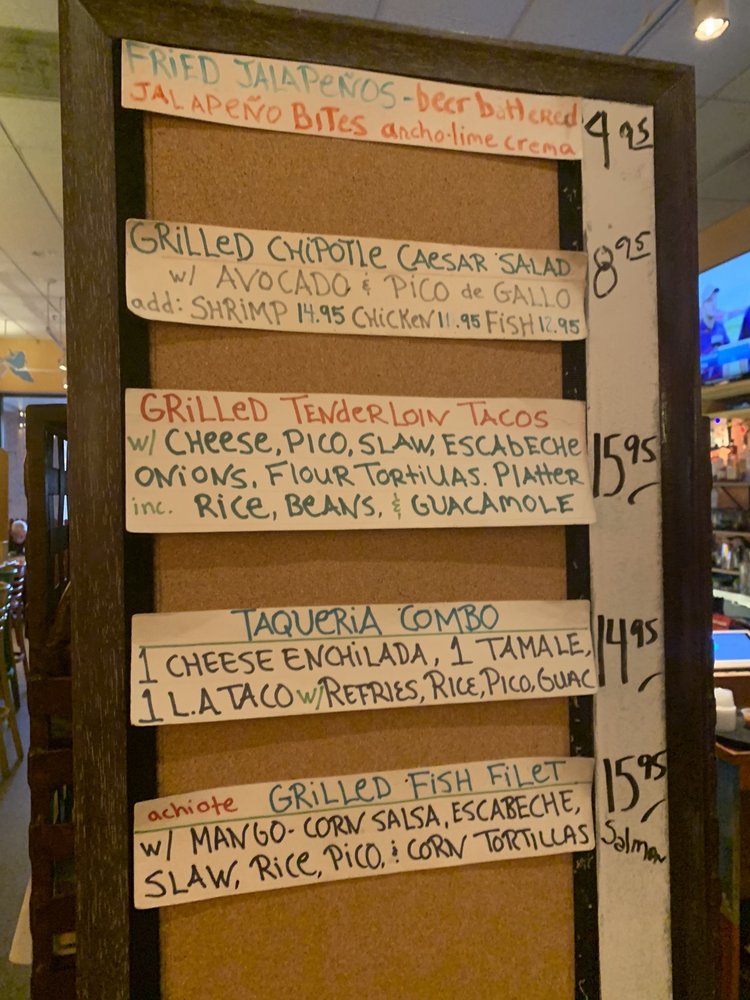 FRIED JALAPEÑOS - beer battered
JALAPEÑO BITES ancho-lime crema
4 95
GRILLED CHIPOTLE CAESAR SALAD
w/ AVOCADO & PICO de GALLO
add: SHRIMP 14.95 CHICKEN 11.95 FISH 12.95
8 95
GRILLED TENDERLOIN TACOS
w/ CHEESE, PICO, SLAW, ESCABECHE
ONIONS, FLOUR TORTILLAS. PLATTER
inc. RICE, BEANS, & GUACAMOLE
15 95
TAQUERIA COMBO
1 CHEESE ENCHILADA, 1 TAMALE,
1 L.A TACO w/ REFRIES, RICE, PICO, GUAC
14 95
achiote GRILLED FISH FILET
w/ MANGO-CORN SALSA, ESCABECHE,
SLAW, RICE, PICO, & CORN TORTILLAS
15 95
Salmon